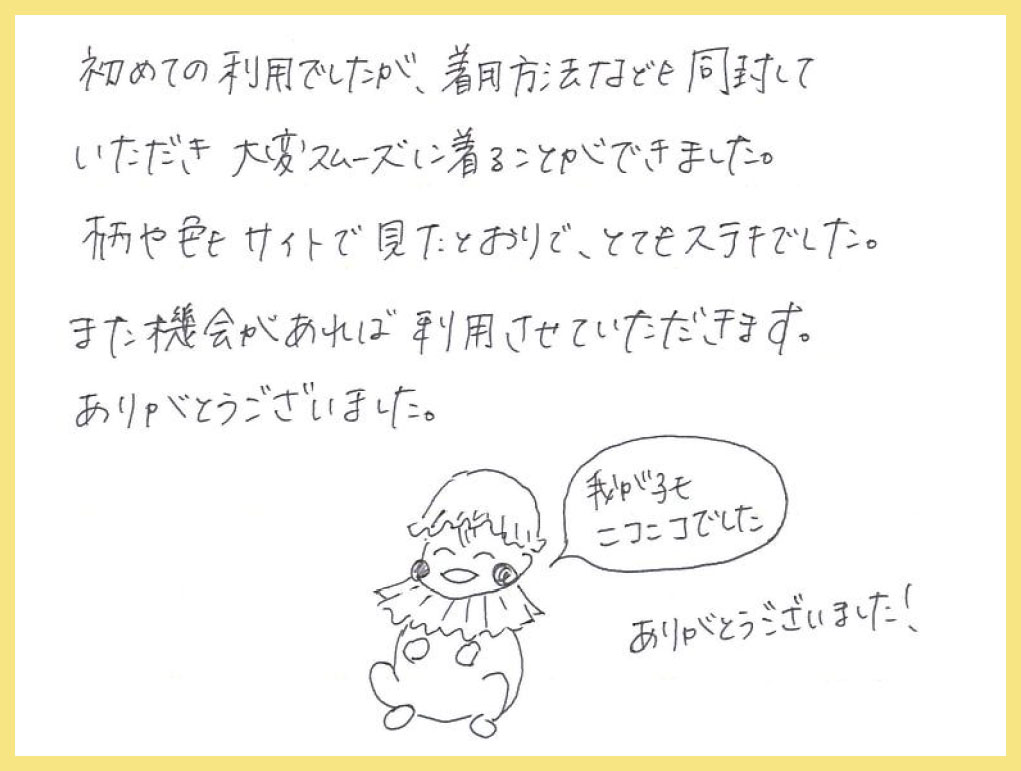 初めての利用でしたが、着用方法なども同封して
いただき大変スムーズに着ることができました。
柄や色もサイトで見たとおりで、とてもステキでした。
また機会があれば利用させていただきます。
ありがとうございました。
我が子も
ニコニコでした
ありがとうございました！